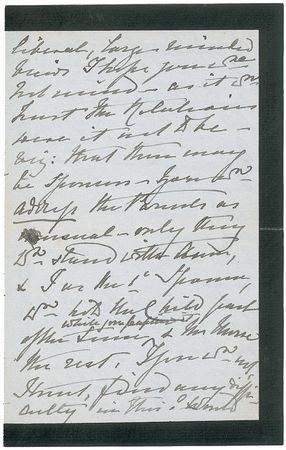 liberal, large minded
views I hope you wd
not mind – as it wd
hurt the Relations
were it not to be –
viz: that there may
be Sponsors – You wd
address the Parents as
usual – only they
wd stand with them,
& I as the 1st Sponsor,
wd hold the Child part
while you baptized
of the time & the Nurse
the rest. If you wd not
I trust, find any diffi-
culty in this